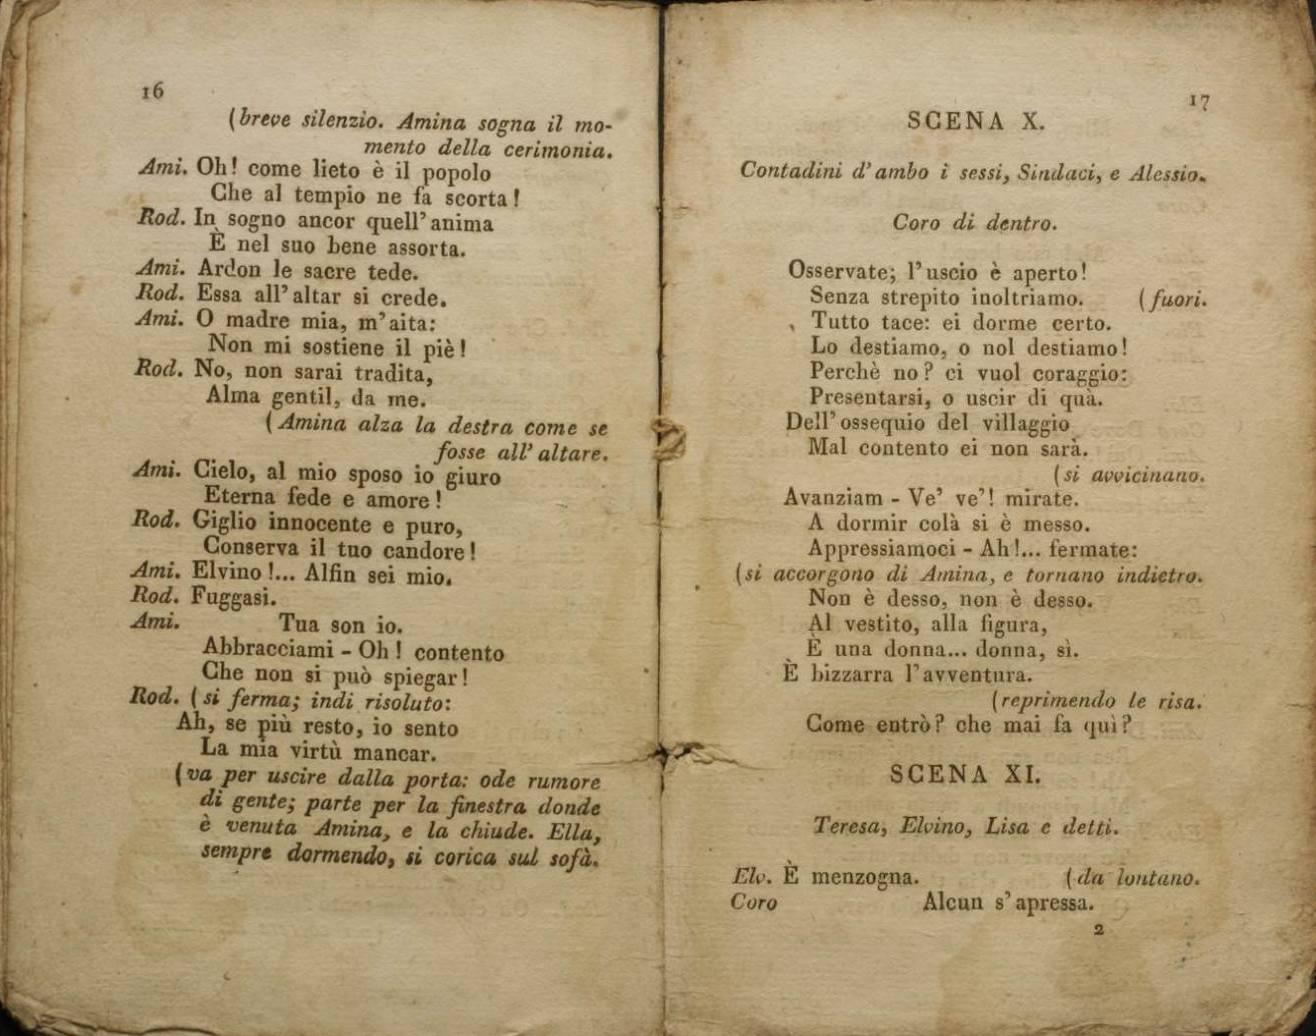 16
(breve silenzio. Amina sogna il mo-
mento della cerimonia.
Ami. Oh! come lieto è il popolo
Che al tempio ne fa scorta!
Rod. In sogno ancor quell' anima
È nel suo bene assorta.
Ami. Ardon le sacre tede.
Rod. Essa all' altar si crede.
Ami. O madre mia, m' aita:
Non mi sostiene il piè!
Rod. No, non sarai tradita,
Alma gentil, da me.
(Amina alza la destra come se
fosse all' altare.
Ami. Cielo, al mio sposo io giuro
Eterna fede e amore!
Rod. Giglio innocente e puro,
Conserva il tuo candore!
Ami. Elvino!... Alfin sei mio.
Rod. Fuggasi.
Ami. Tua son io.
Abbracciami - Oh! contento
Che non si può spiegar!
Rod. (si ferma; indi risoluto:
Ah, se più resto, io sento
La mia virtù mancar.
(va per uscire dalla porta: ode rumore
di gente; parte per la finestra donde
è venuta Amina, e la chiude. Ella,
sempre dormendo, si corica sul sofà.
17
SCENA X.
Contadini d' ambo i sessi, Sindaci, e Alessio.
Coro di dentro.
Osservate; l' uscio è aperto!
Senza strepito inoltriamo. (fuori.
Tutto tace: ei dorme certo.
Lo destiamo, o nol destiamo!
Perchè no? ci vuol coraggio:
Presentarsi, o uscir di quà.
Dell' ossequio del villaggio
Mal contento ei non sarà.
(si avvicinano.
Avanziam - Ve' ve'! mirate.
A dormir colà si è messo.
Appressiamoci - Ah!... fermate:
(si accorgono di Amina, e tornano indietro.
Non è desso, non è desso.
Al vestito, alla figura,
È una donna... donna, sì.
È bizzarra l' avventura.
(reprimendo le risa.
Come entrò? che mai fa quì?
SCENA XI.
Teresa, Elvino, Lisa e detti.
Elv. È menzogna. (da lontano.
Coro Alcun s' apressa.
2